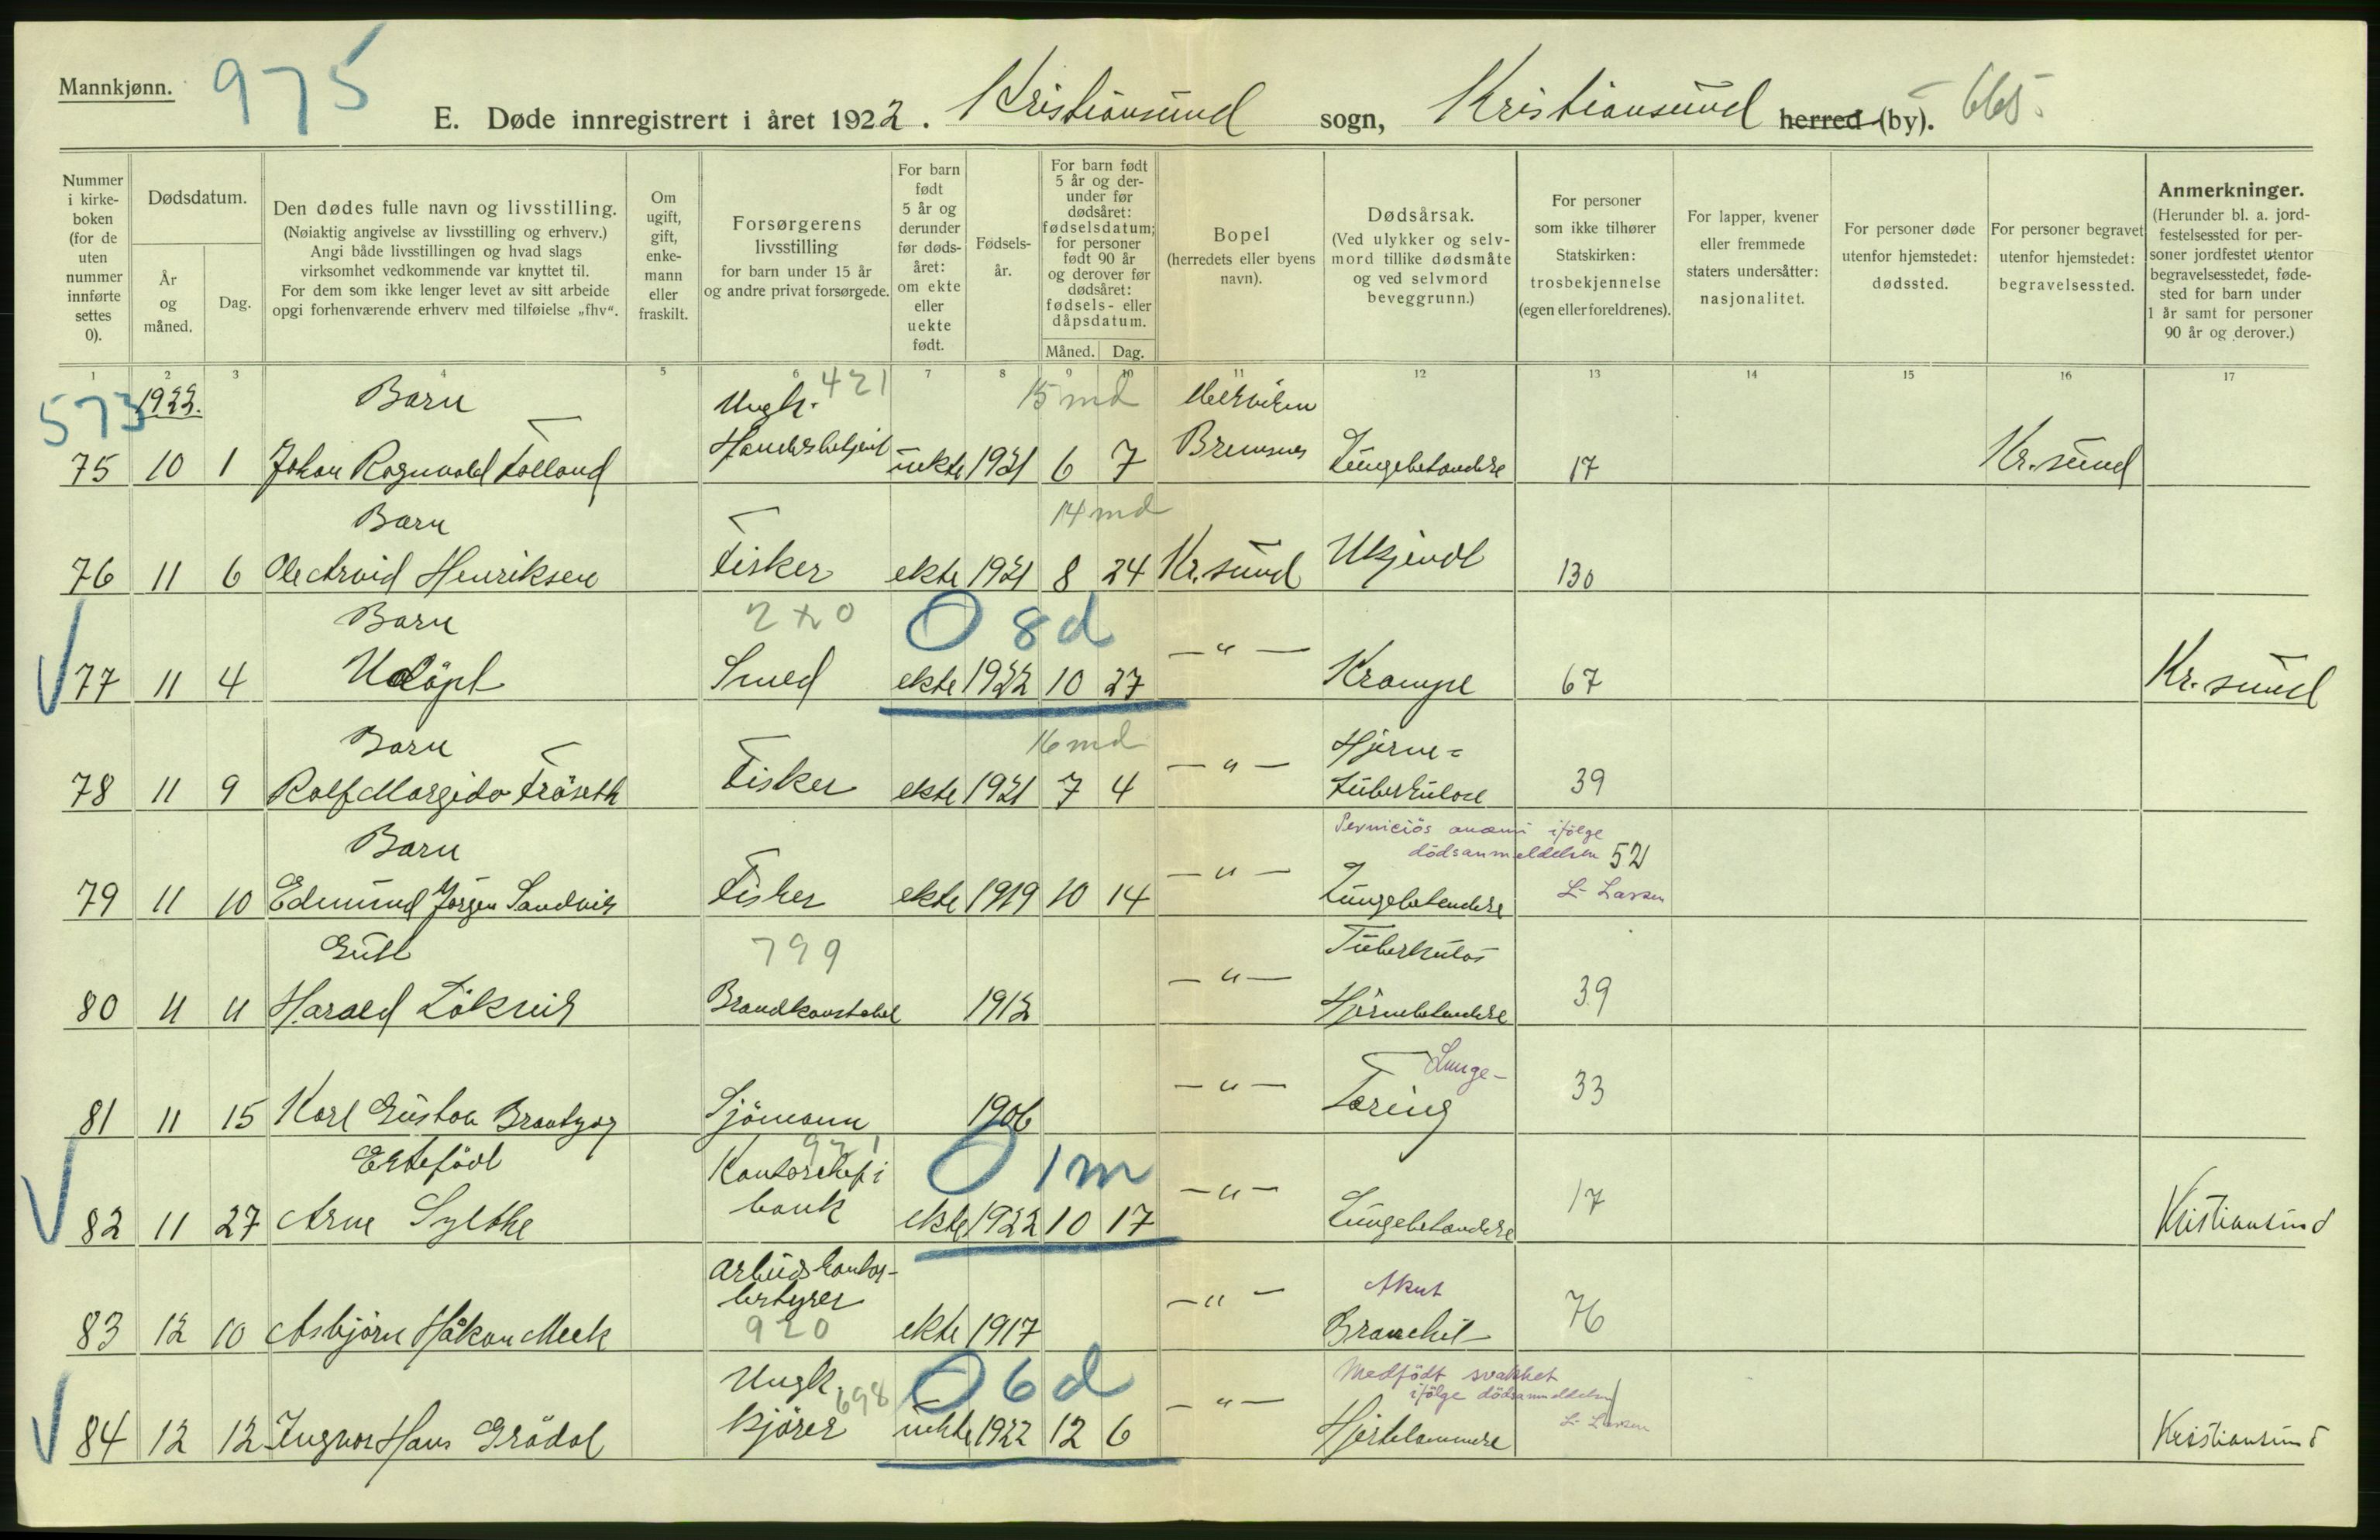 Mannkjønn.
975
E. Døde innregistrert i året 1922. Kristiansund sogn, Kristiansund herred (by). 665.
Nummer i kirke- boken (for de uten nummer innførte settes 0).
Dødsdatum.
År og måned.
Dag.
Den dødes fulle navn og livsstilling.
(Nøiaktig angivelse av livsstilling og erhverv.)
Angi både livsstillingen og hvad slags
virksomhet vedkommende var knyttet til.
For dem som ikke lenger levet av sitt arbeide
opgi forhenværende erhverv med tilføielse „fhv“.
Om ugift, gift, enke- mann eller fraskilt.
Forsørgerens livsstilling
for barn under 15 år
og andre privat forsørgede.
For barn født 5 år og derunder før døds- året: om ekte eller uekte født.
Fødsels- år.
For barn født 5 år og der- under før dødsåret: fødselsdatum; for personer født 90 år og derover før dødsåret: fødsels- eller dåpsdatum.
Måned. Dag.
Bopel
(herredets eller byens navn).
Dødsårsak.
(Ved ulykker og selv- mord tillike dødsmåte og ved selvmord beveggrunn.)
For personer som ikke tilhører Statskirken: trosbekjennelse (egen eller foreldrenes).
For lapper, kvener eller fremmede staters undersåtter: nasjonalitet.
For personer døde utenfor hjemstedet: dødssted.
For personer begravet utenfor hjemstedet: begravelsessted.
Anmerkninger.
(Herunder bl. a. jord- festelsessted for per- soner jordfestet utenfor begravelsesstedet, føde- sted for barn under 1 år samt for personer 90 år og derover.)
1 2 3 4 5 6 7 8 9 10 11 12 13 14 15 16 17
573 1922. Barn Ungk. 421 15 md
75 10 1 Johan Ragnvald Folland Handelsbetjent uekte 1921 6 7 Bremsnes Lungebetændelse 17 Kr.sund
Barn 14 md
76 11 6 Ole Arvid Henriksen Fisker ekte 1921 8 24 Kr.sund Ukjendt 130
Barn 220 O 8 d
77 11 4 Udöpt Smed ekte 1922 10 27 — " — Krampe 67 Kr. sund
Barn 16 md Hjerne=
78 11 9 Rolf Margido Fröseth Fisker ekte 1921 7 4 — " — tuberkulose 39
Barn Perniciös anæmi ifölge
dödsanmeldelsen 52
79 11 10 Edmund Jörgen Sandvik Fisker ekte 1919 10 14 — " — Lungebetændelse L. Larsen
Gutt 799 Tuberkulös
80 11 11 Harald Lökvik Brandkonstabel 1912 — " — Hjernebetændelse 39
Lunge-
81 11 15 Karl Gustav Brantzæg Sjömann 1906 — " — Tæring 33
Ektefödt Kantorchef i 921 O 1 m
82 11 27 Arne Sylthe bank ekte 1922 10 17 — " — Lungebetændelse 17 Kristiansund
Arbeidskontor-
bestyrer Akut
83 12 10 Asbjörn Håkon Meek 920 ekte 1917 — " — Bronchit 76
Ungk. 698 O 6 d Medfödt svakhet
ifölge dödsanmeldelsen
84 12 12 Ingvor Hans Grödal kjörer uekte 1922 12 6 — " — Hjertelammelse L. Larsen Kristiansund